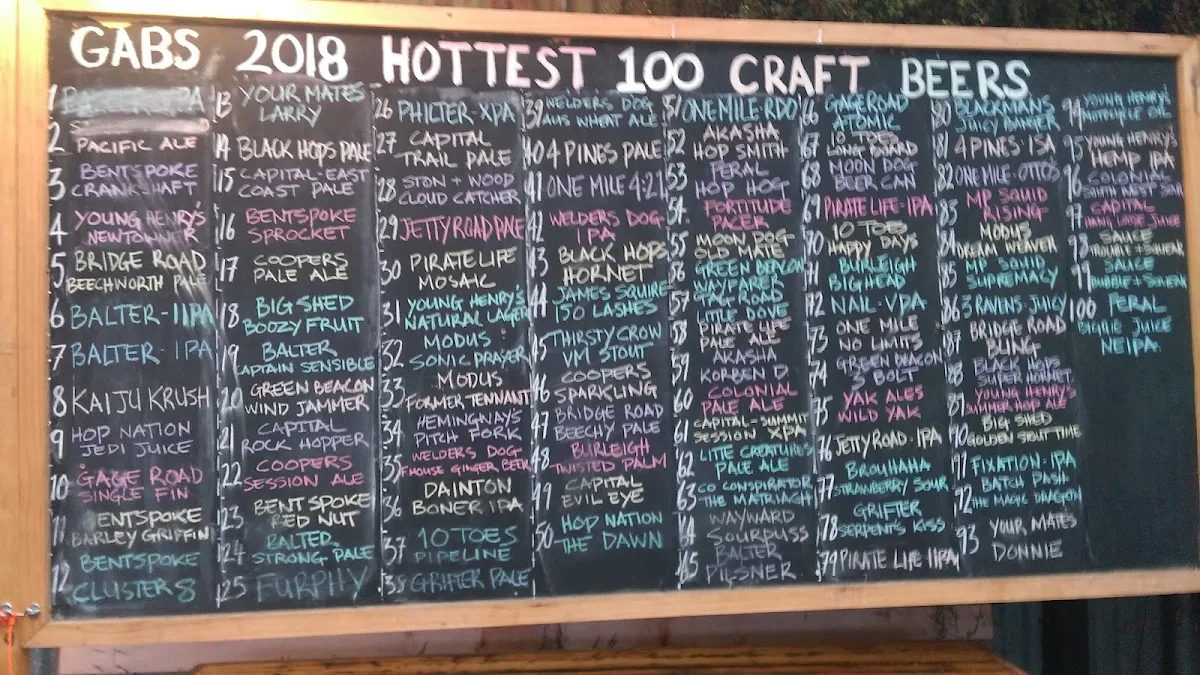 GABS 2018 HOTTEST 100 CRAFT BEERS
1
2
PACIFIC ALE
3 BENTSPOKE
CRANKSHAFT
4 YOUNG HENRY'S
NEWTOWNER
5 BRIDGE ROAD
BEECHWORTH PALE
6 BALTER-IIPA
7 BALTER IPA
8 KAIJU KRUSH
9 HOP NATION
JEDI JUICE
10 GAGE ROAD
SINGLE FIN
11 ENTSPOKE
BARLEY GRIFFIN
12 BENTSPOKE
CLUSTER 8
13 YOUR MATES
LARRY
14 BLACK HOPS PALE
15 CAPITAL-EAST
COAST PALE
16 BENTSPOKE
SPROCKET
17 COOPERS
PALE ALE
18 BIG SHED
BOOZY FRUIT
19 BALTER
CAPTAIN SENSIBLE
20 GREEN BEACON
WIND JAMMER
21 CAPITAL
ROCK HOPPER
22 COOPERS
SESSION ALE
23 BENT SPOKE
RED NUT
24 BALTED
STRONG PALE
25 FURPHY
26 PHILTER-XPA
27 CAPITAL
TRAIL PALE
28 STON + WOOD
CLOUD CATCHER
29 JETTY ROAD PALE
30 PIRATE LIFE
MOSAIC
31 YOUNG HENRY'S
NATURAL LAGER
32 MODUS
SONIC PRAYER
33 MODUS
FORMER TENNANT
34 HEMINGWAY'S
PITCH FORK
35 WELDERS DOG
F/HOUSE GINGER BEER
36 DAINTON
BONER IPA
37 10 TOES
PIPELINE
38 GRIFTER PALE
39 WELDERS DOG
AUS WHEAT ALE
40 4 PINES PALE
41 ONE MILE 4:21
42 WELDERS DOG
IPA
43 BLACK HOPS
HORNET
44 JAMES SQUIRE
150 LASHES
45 THIRSTY CROW
VM STOUT
46 COOPERS
SPARKLING
47 BRIDGE ROAD
BEECHY PALE
48 BURLEIGH
TWISTED PALM
49 CAPITAL
EVIL EYE
50 HOP NATION
THE DAWN
51 ONE MILE-RDO
52 AKASHA
HOP SMITH
53 FERAL
HOP HOG
54 FORTITUDE
PACER
55 MOON DOG
OLD MATE
56 GREEN BEACON
WAYFARER
57 GAGE ROAD
LITTLE DOVE
58 PIRATE LIFE
PALE ALE
59 AKASHA
KORBEN D
60 COLONIAL
PALE ALE
61 CAPITAL-SUMMIT
SESSION XPA
62 LITTE CREATURES
PALE ALE
63 CO CONSPIRATOR
THE MATRIACH
64 WAYWARD
SOURPUSS
65 BALTER
PILSNER
66 GAGE ROAD
ATOMIC
67 10 TOES
LONG BOARD
68 MOON DOG
BEER CAN
69 PIRATE LIFE-IPA
70 10 TOES
HAPPY DAYS
71 BURLEIGH
BIG HEAD
72 NAIL-VPA
73 ONE MILE
NO LIMITS
74 GREEN BEACON
3 BOLT
75 YAK ALES
WILD YAK
76 JETTY ROAD-IPA
77 BROUHAHA
STRAWBERRY SOUR
78 GRIFTER
SERPENTS KISS
79 PIRATE LIFE IIPA
80 BLACKMANS
JUICY BANGER
81 4 PINES-ISA
82 ONE MILE-OTTO'S
83 MP SQUID
RISING
84 MODUS
DREAM WEAVER
85 MP SQUID
SUPREMACY
86 3 RAVENS-JUICY
87 BRIDGE ROAD
BLING
88 BLACK HOPS
SUPER HORNET
89 YOUNG HENRY'S
SUMMER HOP ALE
90 BIG SHED
GOLDEN STOUT TIME
91 FIXATION-IPA
92 BATCH PASH
THE MAGIC DRAGON
93 YOUR MATES
DONNIE
94 YOUNG HENRY'S
MOTORCYCLE OIL
95 YOUNG HENRY'S
HEMP IPA
96 COLONIAL
SOUTH WEST SOUR
97 CAPITAL
HANG LOOSE JUICE
98 SAUCE
TROUBLE +
99 SAUCE
BUBBLE +
100 FERAL
BIGGIE JUICE
NEIPA